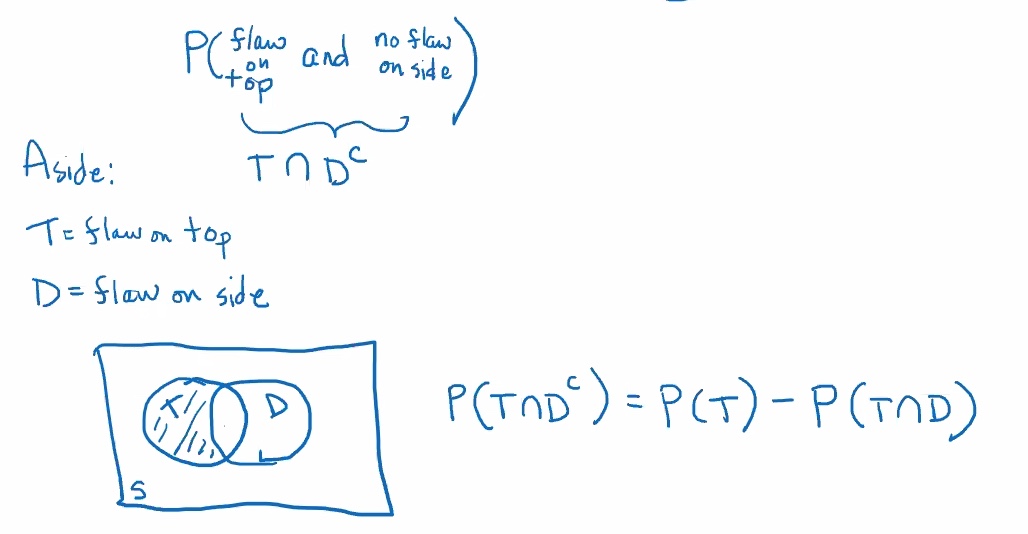 P(flaw on top and no flaw on side)
T∩Dᶜ
Aside:
T= flaw on top
D= flaw on side
T D
S
P(T∩Dᶜ) = P(T) - P(T∩D)